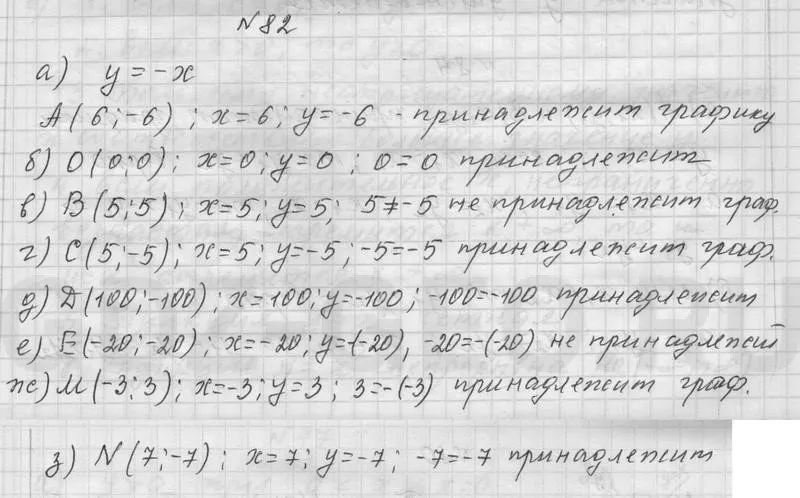 № 82
а) y = -x
A(6;-6) ; x=6; y=-6 - принадлежит графику
б) O(0;0); x=0; y=0 ; 0=0 принадлежит
в) B(5;5) ; x=5; y=5; 5≠-5 не принадлежит граф.
г) C(5;-5); x=5; y=-5; -5=-5 принадлежит граф.
д) D(100;-100); x=100; y=-100; -100=-100 принадлежит
е) E(-20;-20) ; x=-20; y=(-20), -20=-(-20) не принадлежит
ж) M(-3;3); x=-3; y=3 ; 3=-(-3) принадлежит граф.
з) N(7;-7) ; x=7; y=-7; -7=-7 принадлежит